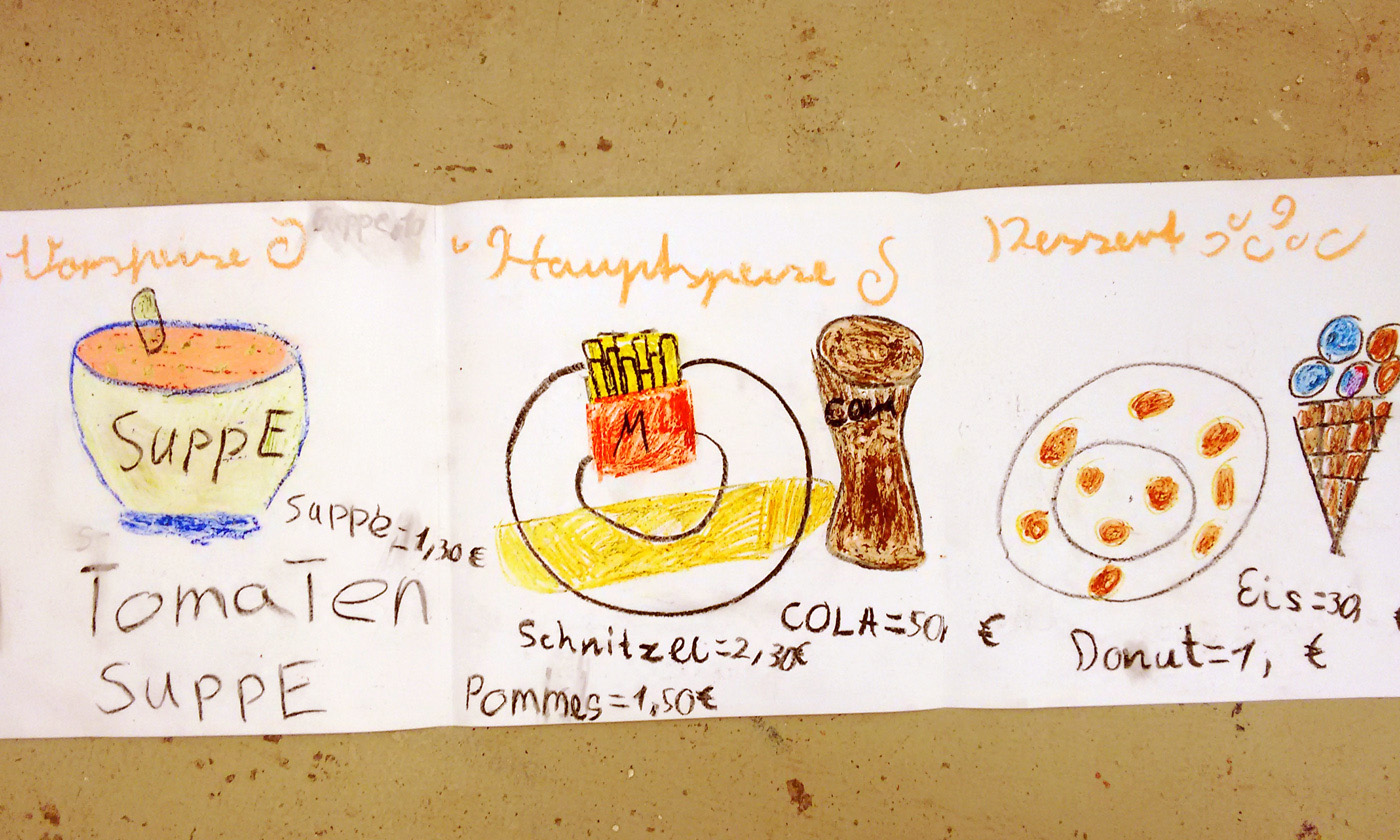 Vorspeise
SuppE
Suppe=1,30 €
TomaTen
SuppE
Hauptspeise
M
COLA
Schnitzel=2,30€
COLA=50, €
Pommes=1,50€
Dessert
Eis=30, €
Donut=1, €